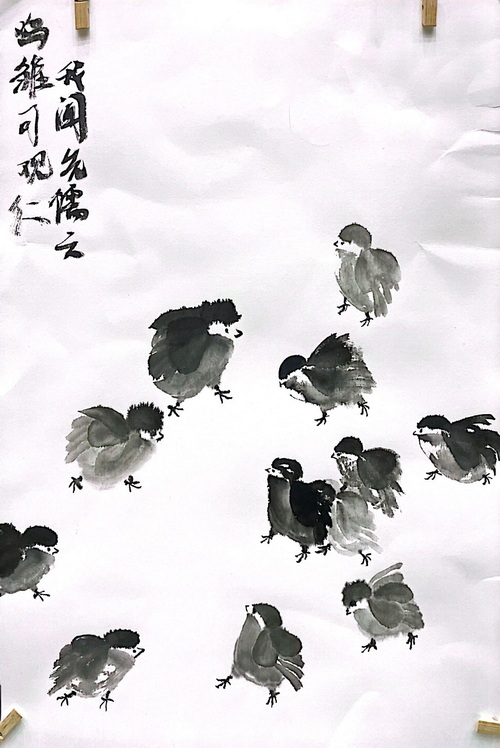 我闻先儒云
鸡雏可观仁